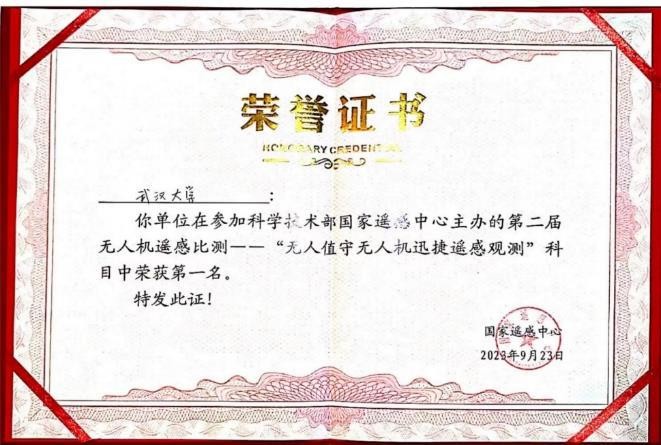 荣誉证书
HONORARY CREDENTIAL
武汉大学:
你单位在参加科学技术部国家遥感中心主办的第二届
无人机遥感比测——“无人值守无人机迅捷遥感观测”科
目中荣获第一名。
特发此证!
国家遥感中心
2023年9月23日